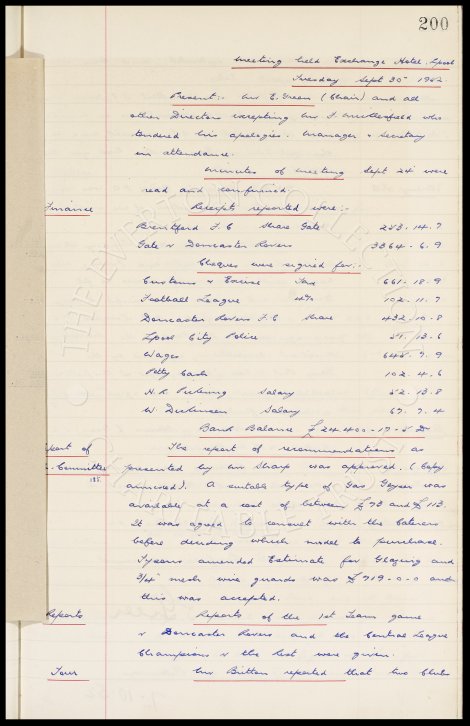 200
Meeting held Exchange Hotel, Lpool
Tuesday Sept 30th 1952
Present:- Mr E. Green (Chair) and all
other Directors excepting Mr who
tendered his apologies. Manager & Secretary
in attendance.
Minutes of meeting Sept 24 were
read and confirmed
Finance Receipts reported were:-
Brentford F.C Share Gate 253. 14. 7
Gate v Doncaster Rovers 3364. 6. 9
Cheques were signed for:-
Customs & Excise Tax 661. 18. 9
Football League 4% 102. 11. 7
Doncaster Rovers F.C Share 432. 10. 8
Lpool City Police 13. 6
Wages 9. 9
Petty Cash 102. 4. 6
H. R. Pickering Salary 52. 13. 8
W Dickinson Salary 67. 7. 4
Bank Balance £24,400-17-5
eport of The report of recommendations as
Committee presented by Mr Sharp was approved. (Copy
annexed). A suitable type of Gas Geyser was
available at a cost of between £73 and £113.
It was agreed to consult with the Caterers
before deciding which model to purchase.
Tysons amended Estimate for Glazing and
3/4" mesh wire guards was £719-0-0 and
this was accepted.
Reports Reports of the 1st Team game
v Doncaster Rovers and the Central League
Champions v the Rest were given.
Tour Mr Britton reported that two Clubs
THE EVERTON COLLECTION